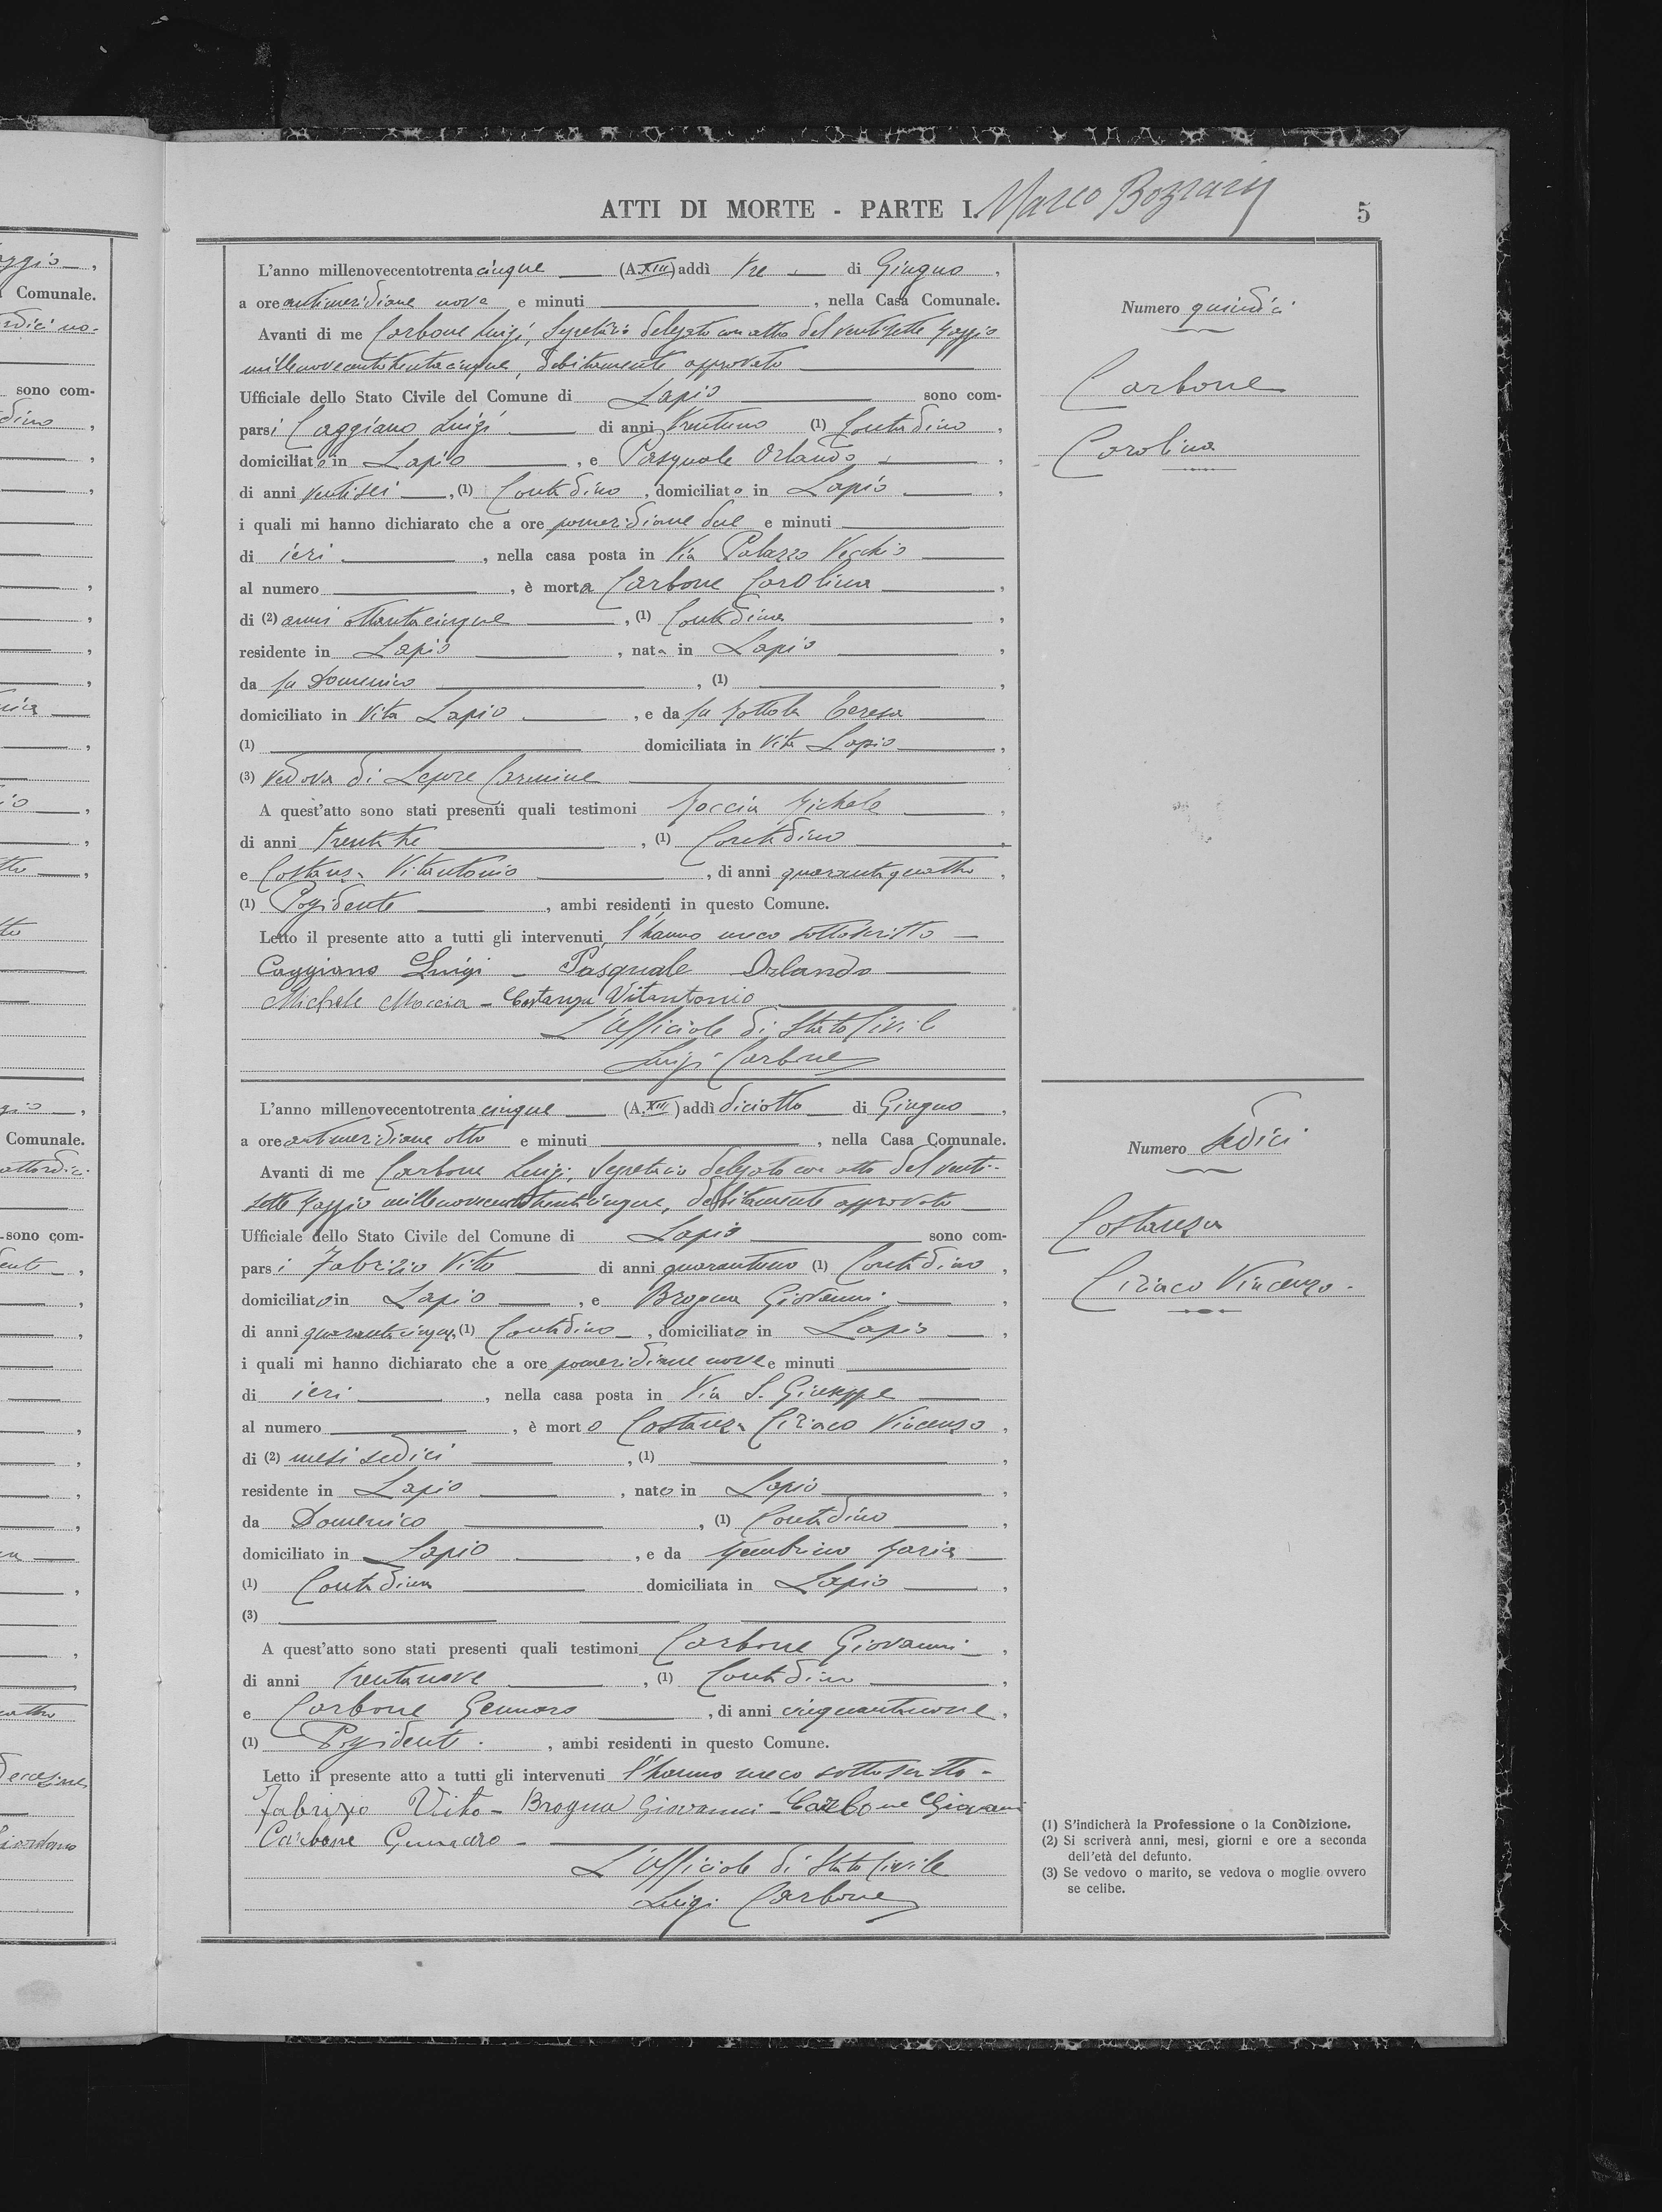 ATTI DI MORTE - PARTE I. Marco Bozzari
5
L'anno millenovecentotrenta cinque (A. XIII) addì tre di Giugno,
a ore antimeridiane nove e minuti , nella Casa Comunale.
Avanti di me Carbone Luigi, Segretario delegato con atto del ventisette Maggio
millenovecentotrentacinque, debitamente approvato
Ufficiale dello Stato Civile del Comune di Lapio sono com-
parsi Caggiano Luigi di anni trentuno (1) Contadino,
domiciliato in Lapio, e Pasquale Orlando,
di anni ventisei, (1) Contadino, domiciliato in Lapio,
i quali mi hanno dichiarato che a ore pomeridiane due e minuti
di ieri , nella casa posta in Via Palazzo Vecchio
al numero , è morta Carbone Carolina,
di (2) anni ottantacinque, (1) Contadina,
residente in Lapio, nata in Lapio,
da fu Domenico, (1) ,
domiciliato in vita Lapio, e da fu Mottola Teresa
(1) domiciliata in vita Lapio,
(3) vedova di Lepore Carmine
A quest'atto sono stati presenti quali testimoni Moccia Michele,
di anni trentatre, (1) Contadino,
e Costanza Vitantonio, di anni quarantaquattro,
(1) Possidente, ambi residenti in questo Comune.
Letto il presente atto a tutti gli intervenuti, l'hanno meco sottoscritto
Caggiano Luigi - Pasquale Orlando
Michele Moccia - Costanza Vitantonio
L'Ufficiale di Stato Civile
Luigi Carbone
Numero quindici
Carbone
Carolina
L'anno millenovecentotrenta cinque (A. XIII) addì diciotto di Giugno,
a ore antimeridiane otto e minuti , nella Casa Comunale.
Avanti di me Carbone Luigi, Segretario delegato con atto del venti-
sette Maggio millenovecentotrentacinque, debitamente approvato
Ufficiale dello Stato Civile del Comune di Lapio sono com-
parsi Fabrizio Vito di anni quarantuno (1) Contadino,
domiciliato in Lapio, e Brogna Giovanni,
di anni quarantacinque, (1) Contadino, domiciliato in Lapio,
i quali mi hanno dichiarato che a ore pomeridiane nove e minuti
di ieri , nella casa posta in Via S. Giuseppe
al numero , è morto Costanza Ciriaco Vincenzo,
di (2) mesi sedici, (1) ,
residente in Lapio, nato in Lapio,
da Domenico, (1) Contadino,
domiciliato in Lapio, e da Maria
(1) Contadina domiciliata in Lapio,
(3)
A quest'atto sono stati presenti quali testimoni Carbone Giovanni,
di anni trentanove, (1) Contadino,
e Carbone Gennaro, di anni cinquantanove,
(1) Possidente. , ambi residenti in questo Comune.
Letto il presente atto a tutti gli intervenuti l'hanno meco sottoscritto -
Fabrizio Vito - Brogna Giovanni - Carbone Giovanni
Carbone Gennaro -
L'Ufficiale di Stato Civile
Luigi Carbone
Numero sedici
Costanza
Ciriaco Vincenzo.
(1) S'indicherà la Professione o la Condizione.
(2) Si scriverà anni, mesi, giorni e ore a seconda
dell'età del defunto.
(3) Se vedovo o marito, se vedova o moglie ovvero
se celibe.